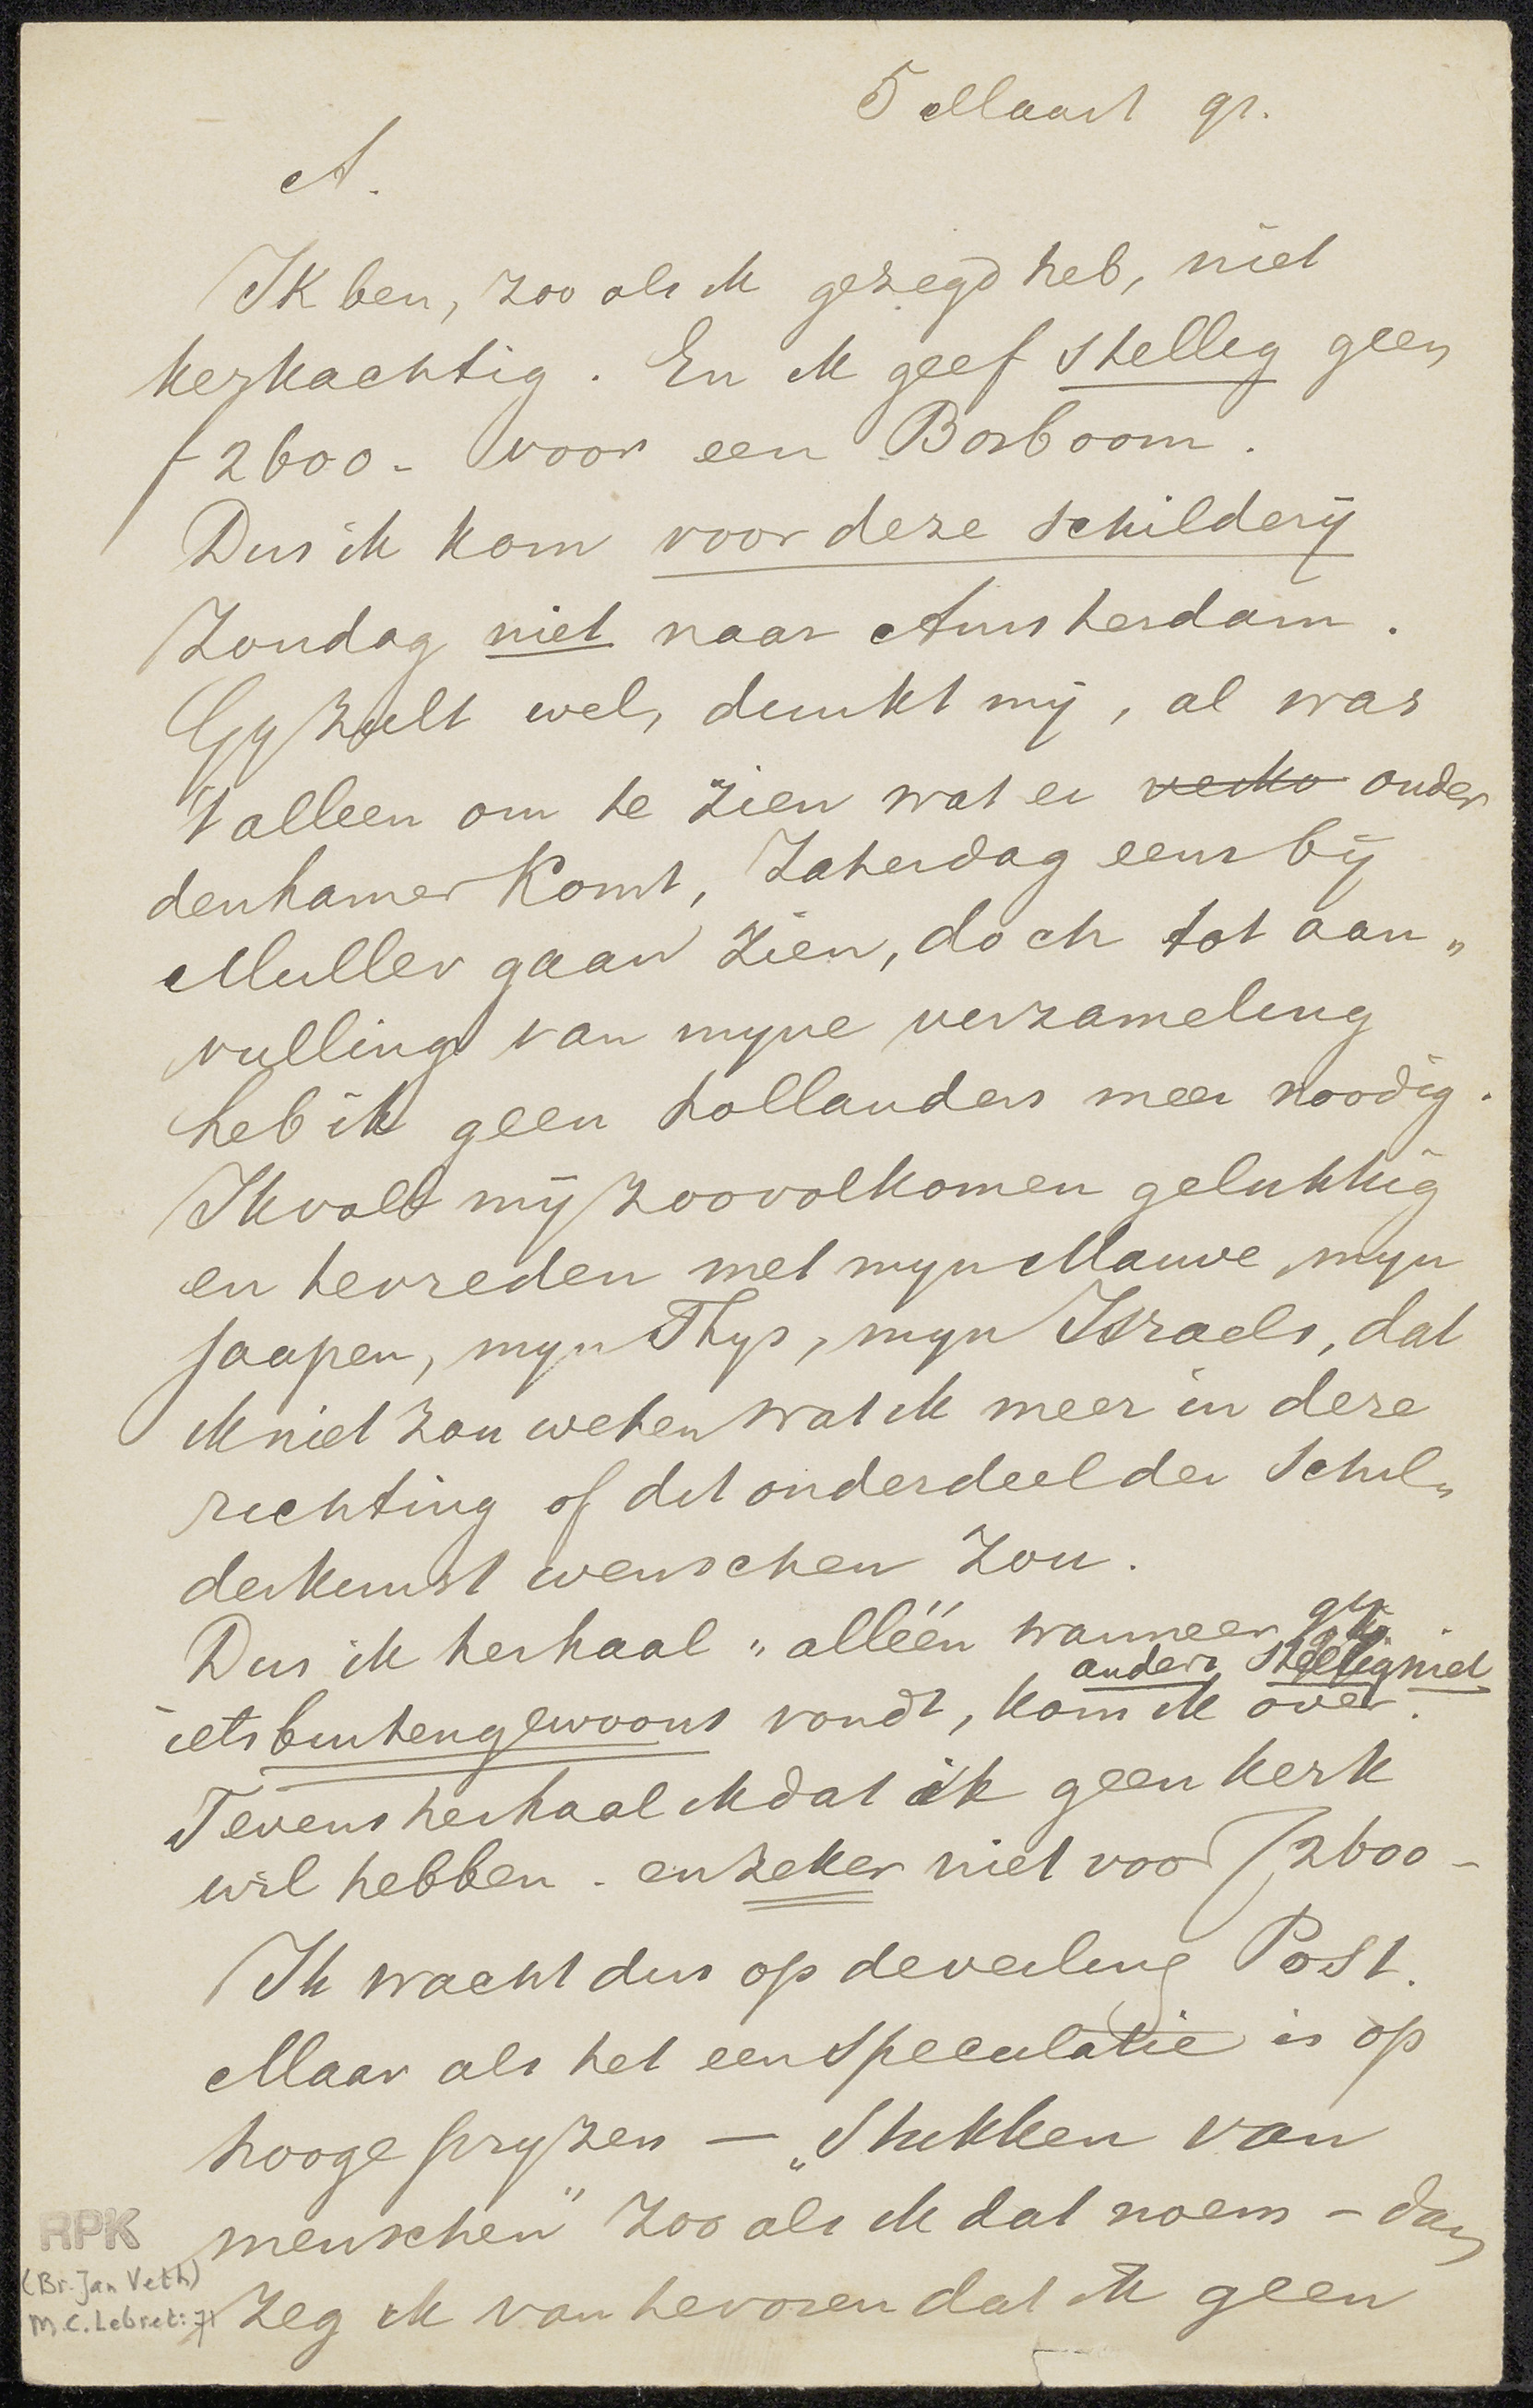 5 Maart 91.
A.
Ik ben, zoo als ik gezegd heb, niet
kerkachtig. En ik geef stellig geen
f 2600- voor een Bosboom.
Dus ik kom voor deze schildery
Zondag niet naar Amsterdam.
Gy zult wel, dunkt mij, al was
't alleen om te zien wat er verko onder
den hamer komt, Zaterdag eens bij
Muller gaan zien, doch tot aan„
vulling van myne verzameling
heb ik geen hollanders meer noodig.
Ik voel mij zoo volkomen gelukkig
en tevreden met myn Mauve, myn
Jaapen, myn Thys, myn Israels, dat
ik niet zou weten wat ik meer in deze
richting of dit onderdeel der Schil„
derkunst wenschen zou.
Dus ik herhaal „ alléén wanneer gij
anders stellig niet
iets buitengewoons vondt, kom ik over.
Tevens herhaal ik dat ik geen kerk
wil hebben - en zeker niet voor f 2600 -
Ik wacht dus op de veiling Post.
Maar als het een speculatie is op
hooge pryzen — „Stukken van
menschen" zoo als ik dat noem - dan
zeg ik van tevoren dat ik geen
RPK
(Br. Jan Veth)
M.C. Lebret: 71